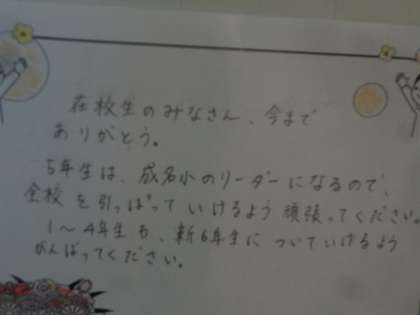 在校生のみなさん、今まで
ありがとう。
5年生は、成名小のリーダーになるので、
全校を引っぱっていけるよう頑張ってください。
1～4年生も、新6年生についていけるよう
がんばってください。